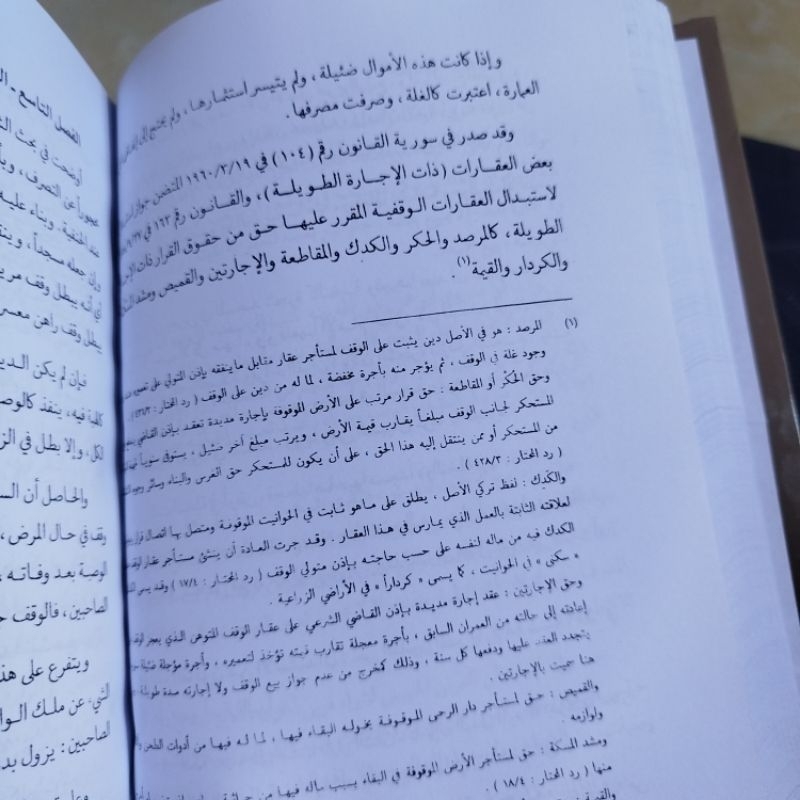 وإذا كانت هذه الأموال ضئيلة ، ولم يتيسر استثمارها ، ولم يحتج إلى
العمارة ، اعتبرت كالغلة ، وصرفت مصرفها .
وقد صدر في سورية القانون رقم (١٠٤) في ١٩٦٠/٣/١٩ المتضمن جواز
بعض العقارات (ذات الإجارة الطويلة) ، والقانون رقم ١٦٣ في
لاستبدال العقارات الوقفية المقرر عليها حق من حقوق القرار ذات
الطويلة ، كالمرصد والحكر والكدك والمقاطعة والإجارتين والقميص ومشد
والكردار والقيمة(١) .
(١) المرصد : هو في الأصل دين يثبت على الوقف لمستأجر عقار مقابل ما ينفقه بإذن المتولي على تعميره
وجود غلة في الوقف ، ثم يؤجر منه بأجرة مخفضة ، لما له من دين على الوقف ( رد المحتار :
وحق الحكر أو المقاطعة : حق قرار مرتب على الأرض الموقوفة بإجارة مديدة تعقد بإذن القاضي
المستحكر لجانب الوقف مبلغاً يقارب قيمة الأرض ، ويرتب مبلغ آخر ضئيل ، يستوفى سنوياً
من المستحكر أو ممن ينتقل إليه هذا الحق ، على أن يكون للمستحكر حق الغرس والبناء وسائر وجوه
( رد المحتار : ٤٢٨/٣ ) .
والكدك : لفظ تركي الأصل ، يطلق على ماهو ثابت في الحوانيت الموقوفة ومتصل بها اتصال قرار
لعلاقته الثابتة بالعمل الذي يمارس في هذا العقار . وقد جرت العادة أن ينشئ مستأجر عقار الوقف
الكدك فيه من ماله لنفسه على حسب حاجته بإذن متولي الوقف ( رد المحتار : ١٧/٤ ) وقد يسمى
« سكنى » في الحوانيت ، كما يسمى « كرداراً » في الأراضي الزراعية .
وحق الإجارتين : عقد إجارة مديدة بإذن القاضي الشرعي على عقار الوقف المتوهن الذي يعجز الوقف
إعادته إلى حالته من العمران السابق ، بأجرة معجلة تقارب قيمته تؤخذ لتعميره ، وأجرة مؤجلة ضئيلة
يتجدد العقد عليها ودفعها كل سنة ، وذلك كمخرج من عدم جواز بيع الوقف ولا إجارته مدة طويلة
هنا سميت بالإجارتين .
والقميص : حق لمستأجر دار الرحى الموقوفة بخوله البقاء فيها ، لما له فيها من أدوات الطحن
ولوازمه .
ومشد المسكة : حق لمستأجر الأرض الموقوفة في البقاء بسبب ماله فيها من
منها ( رد المحتار : ١٨/٤ ) .
والقيمة
الفصل التاسع -
أوضحت في بحث
التصرف ،
عند الحنفية . وبناء عليه
وإن جعله مسجداً ،
أي أنه يبطل وقف
يبطل وقف راهن معسر
فإن لم يكن الدين
فيه ، ينفذ كالوصية
لكل ، وإلا بطل في
والحاصل أن
وقف في حال المرض ،
الوصية بعد وفاته ،
الصاحبين ، فالوقف
ويتفرع على
الشيء عن ملك
الصاحبين : يزول